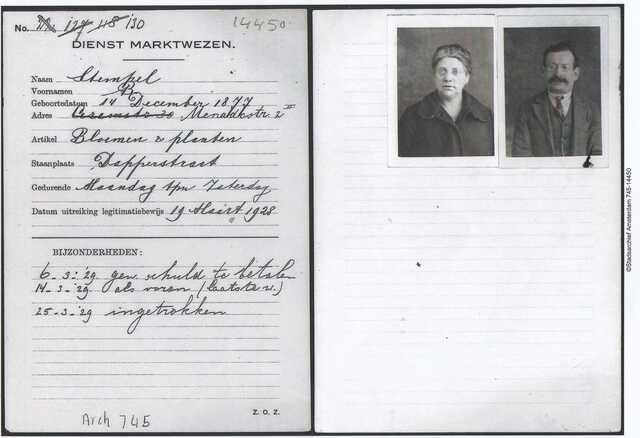 No. 127 48 130
14450
DIENST MARKTWEZEN.
Naam Stempel
Voornamen B
Geboortedatum 14 December 1877
Adres Menadostr. 2 II
Artikel Bloemen & planten
Staanplaats Dapperstraat
Gedurende Maandag t/m Zaterdag
Datum uitreiking legitimatiebewijs 19 Maart 1928
BIJZONDERHEDEN:
6-3-'29 gen. schuld te betalen
14-3-'29 als voren (laatste v.)
25-3-'29 ingetrokken
Arch 745
Z. O. Z.
©Stadsarchief Amsterdam 745-14450